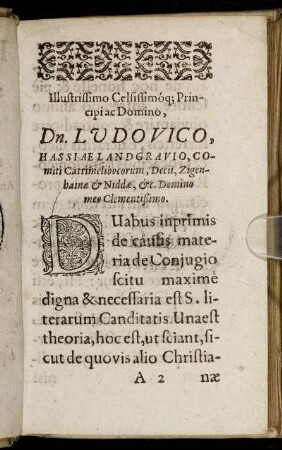 Illustrissimo Celsissimóq; Prin-
cipi ac Domino,
Dn. LVDOVICO,
HASSIAE LANDGRAVIO, CO-
miti Cattimelibocorum, Decii, Zigen-
hainæ & Niddæ, &c. Domino
meo Clementissimo.
DUabus inprimis
de causis mate-
ria de Conjugio
scitu maximè
digna & necessaria est S. li-
terarum Canditatis. Una est
theoria, hoc est, ut sciant, si-
cut de quovis alio Christia-
A 2 næ